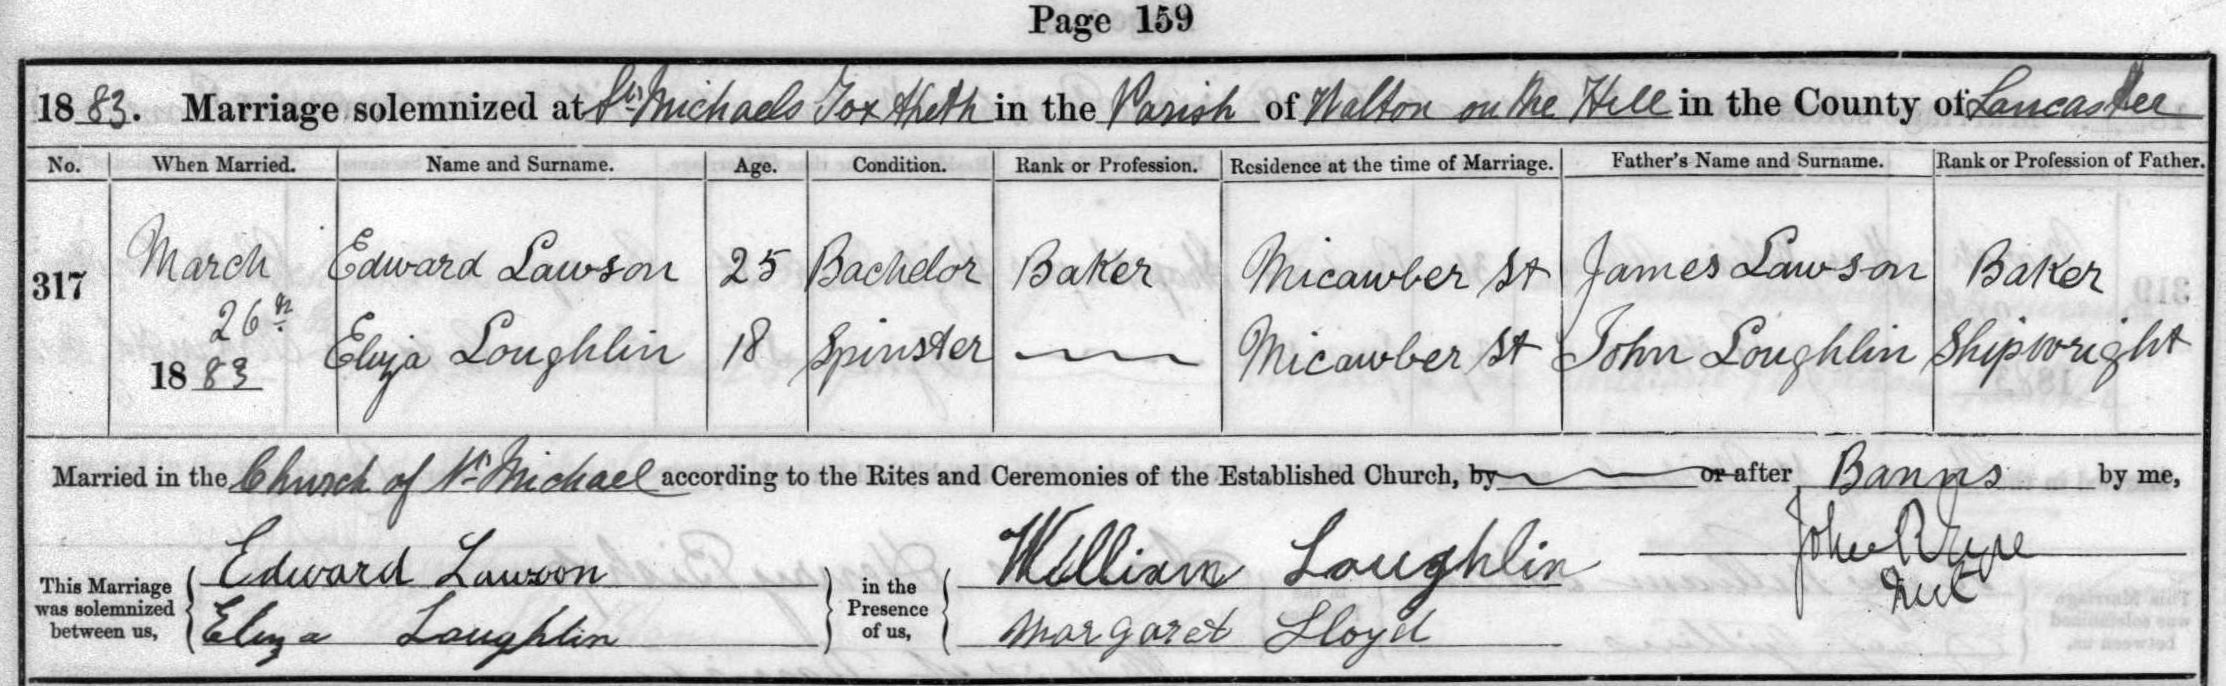 Page 159
1883. Marriage solemnized at St Michaels Toxtheth in the Parish of Walton on the Hill in the County of Lancaster
No. When Married. Name and Surname. Age. Condition. Rank or Profession. Residence at the time of Marriage. Father's Name and Surname. Rank or Profession of Father.
317 March 26th 1883 Edward Lawson 25 Bachelor Baker Micawber St James Lawson Baker
Eliza Loughlin 18 Spinster Micawber St John Loughlin Shipwright
Married in the Church of St Michael according to the Rites and Ceremonies of the Established Church, by or after Banns by me,
This Marriage was solemnized between us, Edward Lawson in the Presence of us, William Loughlin John
Eliza Loughlin Margaret Lloyd